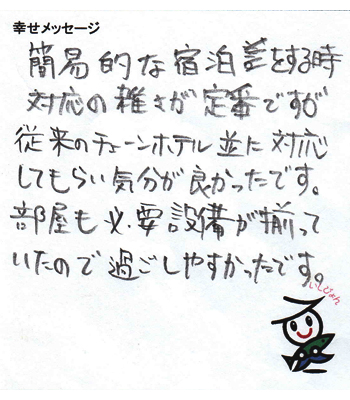 幸せメッセージ
簡易的な宿泊差をする時
対応の雑さが定番ですが
従来のチェーンホテル並に対応
してもらい気分が良かったです。
部屋も必要設備が揃って
いたので過ごしやすかったです。